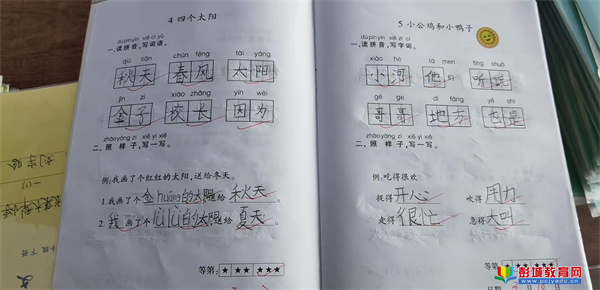 4 四个太阳
dú pīn yīn xiě cí yǔ
一、读拼音，写词语。
qiū tiān chūn fēng tài yáng
秋天 春风 太阳
jīn zi xiào zhǎng yīn wèi
金子 校长 因为
zhào yàng zi xiě yi xiě
二、照样子，写一写。
例：我画了个红红的太阳，送给冬天。
1.我画了个金huáng的太阳送给秋天
2.我画了个lǜ lǜ的太阳送给夏天。
等第：★ ★★ ★★★
5 小公鸡和小鸭子
dú pīn yīn xiě zì cí
一、读拼音，写字词。
xiǎo hé tā men tīng shuō
小河 他们 听说
gē ge dì fāng yě shì
哥哥 地方 也是
zhào yàng zi xiě yi xiě
二、照样子，写一写。
例：吃得很欢
捉得开心 吹得用力
走得很忙 急得大叫
等第：★ ★★ ★★★
日期
彭城教育网
www.pcjyedu.cn